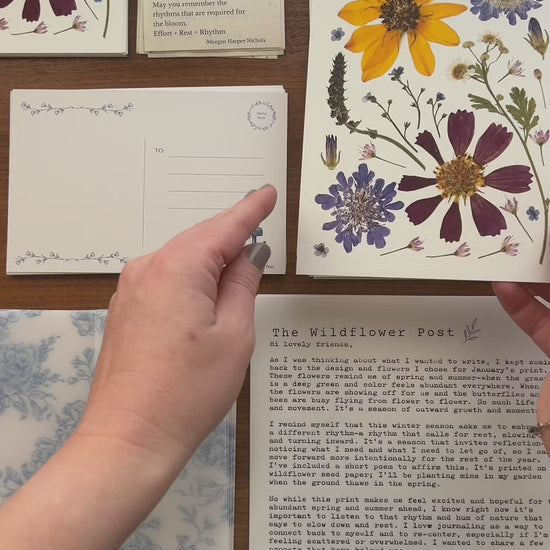 May you remember the
rhythms that are required for
the bloom.
Effort + Rest = Rhythm
-Morgan Harper Nichols
TO:
Post
The Wildflower Post
Hi lovely friends,
As I was thinking about what I wanted to write, I kept
back to the design and flowers I chose for January's print.
These flowers remind me of spring and summer-when the
is a deep green and color feels abundant everywhere. When
the flowers are showing off for us and the butterflies
bees are busy flying from flower to flower. So much life
and movement. It's a season of outward growth and
I remind myself that this winter season asks me to
a different rhythm-a rhythm that calls for rest,
and turning inward. It's a season that invites
noticing what I need and what I need to let go of, so I
move forward more intentionally for the rest of the year.
I've included a short poem to affirm this. It's printed on
wildflower seed paper; I'll be planting mine in my garden
when the ground thaws in the spring.
So while this print makes me feel excited and hopeful for
abundant spring and summer ahead, I know right now it's
important to listen to that rhythm and hum of nature that
says to slow down and rest. I love journaling as a way to
connect back to myself and to re-center, especially if I'm
feeling scattered or overwhelmed. I wanted to share a few